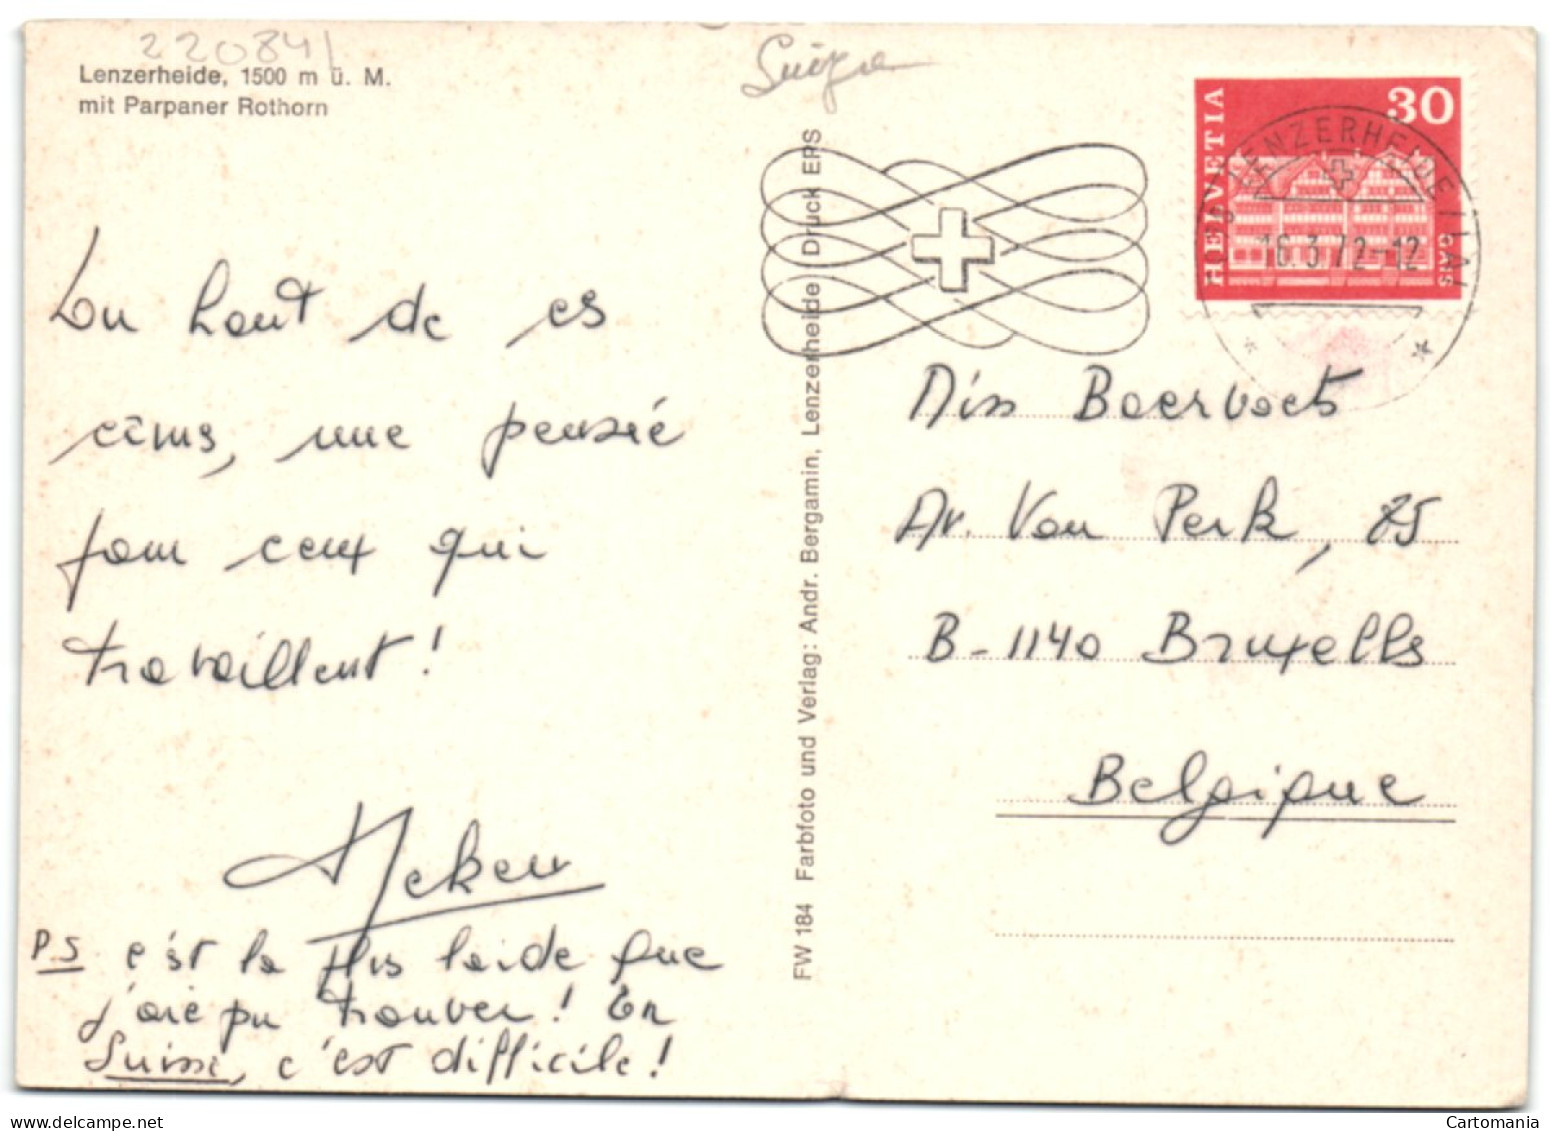 220841
Lenzerheide, 1500 m ü. M.
mit Parpaner Rothorn
Du haut de ces
cîmes, une pensée
pour ceux qui
travaillent!
PS c'est la plus laide que
j'aie pu trouver! En
Suisse, c'est difficile!
FW 184 Farbfoto und Verlag: Andr. Bergamin, Lenzerheide Druck EPS
HELVETIA
30
GAIS
LENZERHEIDE
16.3.72-12
Miss Boervoets
Av. Van Perk, 85
B-1140 Bruxelles
Belgique
Cartomania